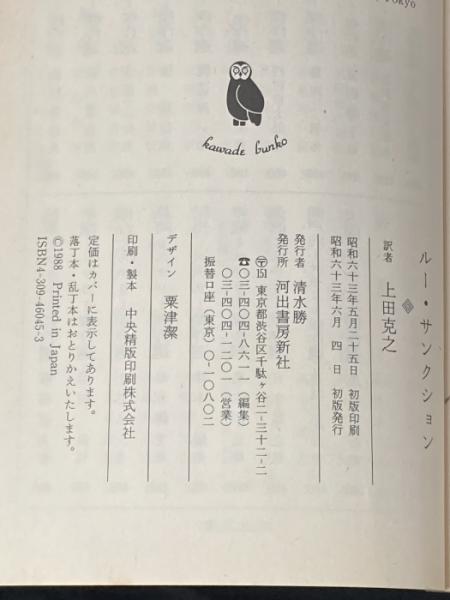 Tokyo
kawade bunko
ルー・サンクション
訳者 上田克之
昭和六十三年五月二十五日 初版印刷
昭和六十三年六月 四 日 初版発行
発行者 清水勝
発行所 河出書房新社
〒151 東京都渋谷区千駄ヶ谷二-三十二-二
☎〇三-四〇四-八六一一（編集）
〇三-四〇四-一二〇一（営業）
振替口座（東京）〇-一〇八〇二
デザイン 粟津潔
印刷・製本 中央精版印刷株式会社
定価はカバーに表示してあります。
落丁本・乱丁本はおとりかえいたします。
©1988 Printed in Japan
ISBN4-309-46045-3